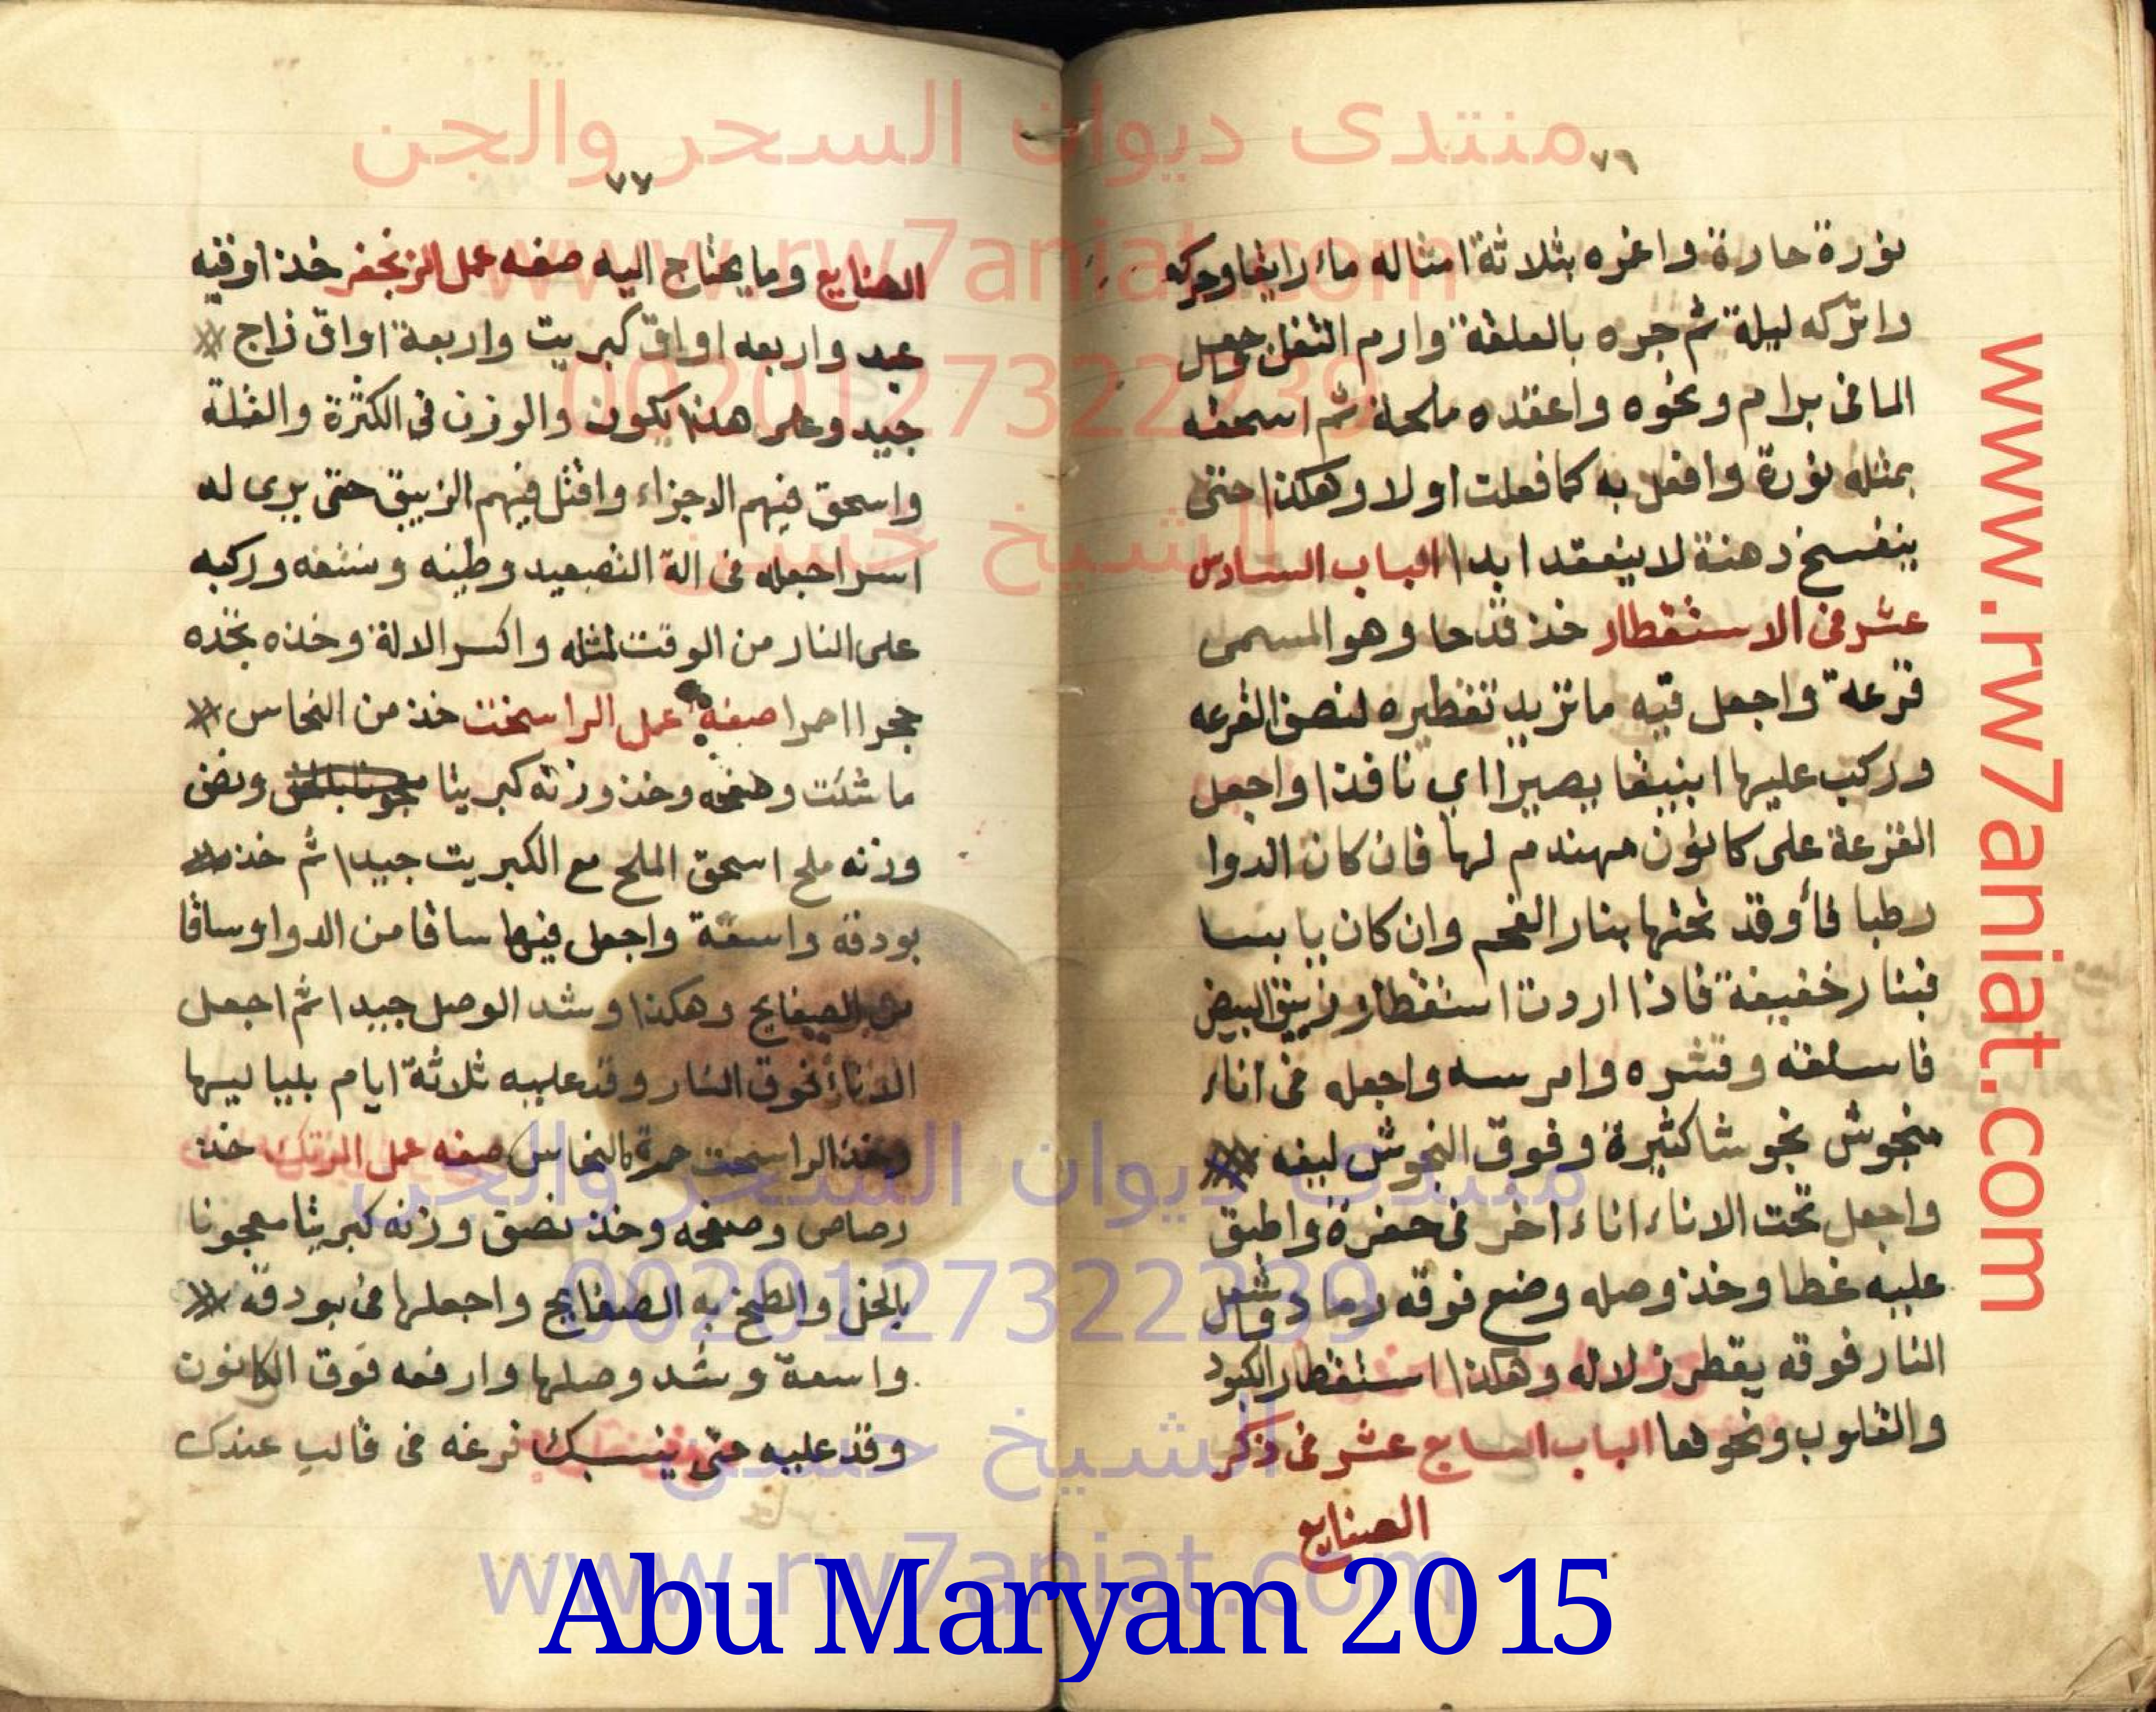 ٧٦
نورة حارة واغمره بثلاثة امثاله ماء رايقا وحركه
واتركه ليلة ثم جره بالعلقة وارم الثفل وجعل
الما فى برام ونحوه واعقده ملحا ثم اسحقه
بمثله نورة وافعل به كما فعلت اولا وهكذا حتى
ينفسخ دهنة لا ينعقد ابدا الباب السادس
عشر فى الاستقطار خذ قدحا وهو المسمى
قرعة واجعل فيه ما تريد تقطيره لنصف القرعه
وركب عليها انبيقا بصيرا اى نافذا واجعل
القرعة على كانون مهندم لها فان كان الدوا
رطبا فأوقد تحتها بنار الفحم وان كان يابسا
فبنار خفيفة فاذا اردت استقطار زيبق البيض
فاسلقه وقشره وامرسه واجعله فى اناء
منجوش نجوشا كثيرة وفوق النجوش ليفه
واجعل تحت الاناء اناء اخر فى حفرة واطبق
عليه غطا وخذ وصله وضع فوقه رماد وشعل
النار فوقه يقطر زلاله وهكذا استقطار الكبود
والقلوب ونحوها الباب السابع عشر فى ذكر
الصنايع
٧٧
الصنايع وما يحتاج اليه صفه عمل الزنجفر خذ اوقيه
عبد واربعه اواق كبريت واربعة اواق زاج
جيد وعلى هذا يكون والوزن فى الكثرة والقلة
واسحق فيهم الاجزاء واقتل فيهم الزيبق حتى يرى له
اسر اجعله فى الة التصعيد وطينه ونشفه وركبه
على النار من الوقت لمثله واكسر الالة وخذه تجده
حجرا احمرا صفة عمل الراسخت خذ من النحاس
ما شئت وصفحه وخذ وزنه كبريتا ونصف
وزنه ملح اسحق الملح مع الكبريت جيدا ثم خذ
بودقة واسعة واجعل فيها ساقا من الدوا وساقا
من الصفايح وهكذا وشد الوصل جيدا ثم اجعل
الاناء فوق النار وقد عليه ثلاثة ايام بلياليها
وخذ الراسخت حمرة كالنحاس صفه عمل المرتك خذ
رصاص وصفحه وخذ نصف وزنه كبريتا معجونا
بالخل والطخ به الصفايح واجعلها فى بودقه
واسعة وشد وصلها وارفعه فوق الكانون
وقد عليه حتى ينسبك فرغه فى قالب عندك
منتدى ديوان السحر والجن
www.rw7aniat.com
00201273322239
الشيخ حسن
منتدى ديوان السحر والجن
00201273322239
الشيخ حسن
www.rw7aniat.com
www.rw7aniat.com
Abu Maryam 2015